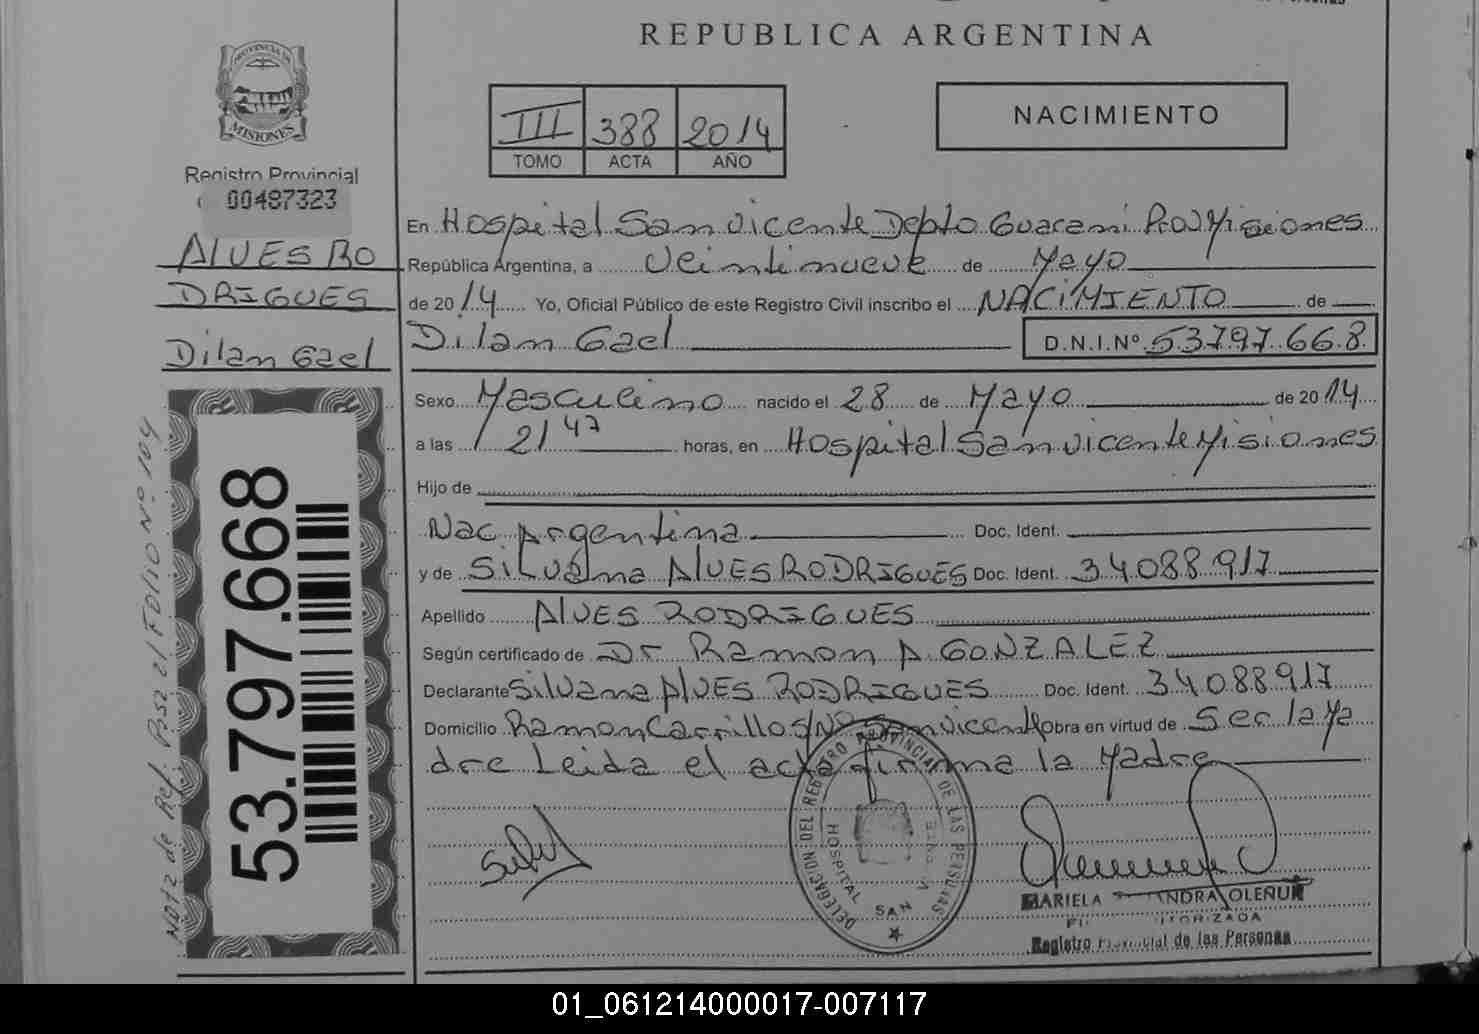 REPUBLICA ARGENTINA
PROVINCIA DE
MISIONES
Registro Provincial
00487323
ALVES RO
DRIGUES
Dilan Gael
53.797.668
Nota de Ref. Pasa al FOLIO Nº 104
III 388 2014
TOMO ACTA AÑO
NACIMIENTO
En Hospital San Vicente Depto Guarani Prov Misiones
República Argentina, a veintinueve de Mayo
de 2014 Yo, Oficial Público de este Registro Civil inscribo el NACIMIENTO de
Dilan Gael D.N.I.Nº 53.797.668
Sexo Masculino nacido el 28 de Mayo de 2014
a las 21 47 horas, en Hospital San Vicente Misiones
Hijo de
Nac Argentina Doc. Ident.
y de Silvana ALVES RODRIGUES Doc. Ident. 34088917
Apellido ALVES RODRIGUES
Según certificado de Dr Ramon A GONZALEZ
Declarante Silvana ALVES RODRIGUES Doc. Ident. 34088917
Domicilio Ramon Carrillo S/Nº San Vicente obra en virtud de Ser la Ma
dre Leida el acta firma la Madre
DELEGACION DEL REGISTRO PROVINCIAL DE LAS PERSONAS
HOSPITAL SAN VICENTE
MARIELA OLENUK
Registro Provincial de las Personas
01_061214000017-007117